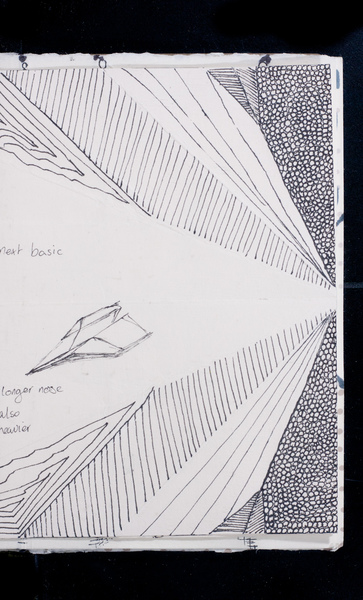 next basic
longer nose
also
heavier